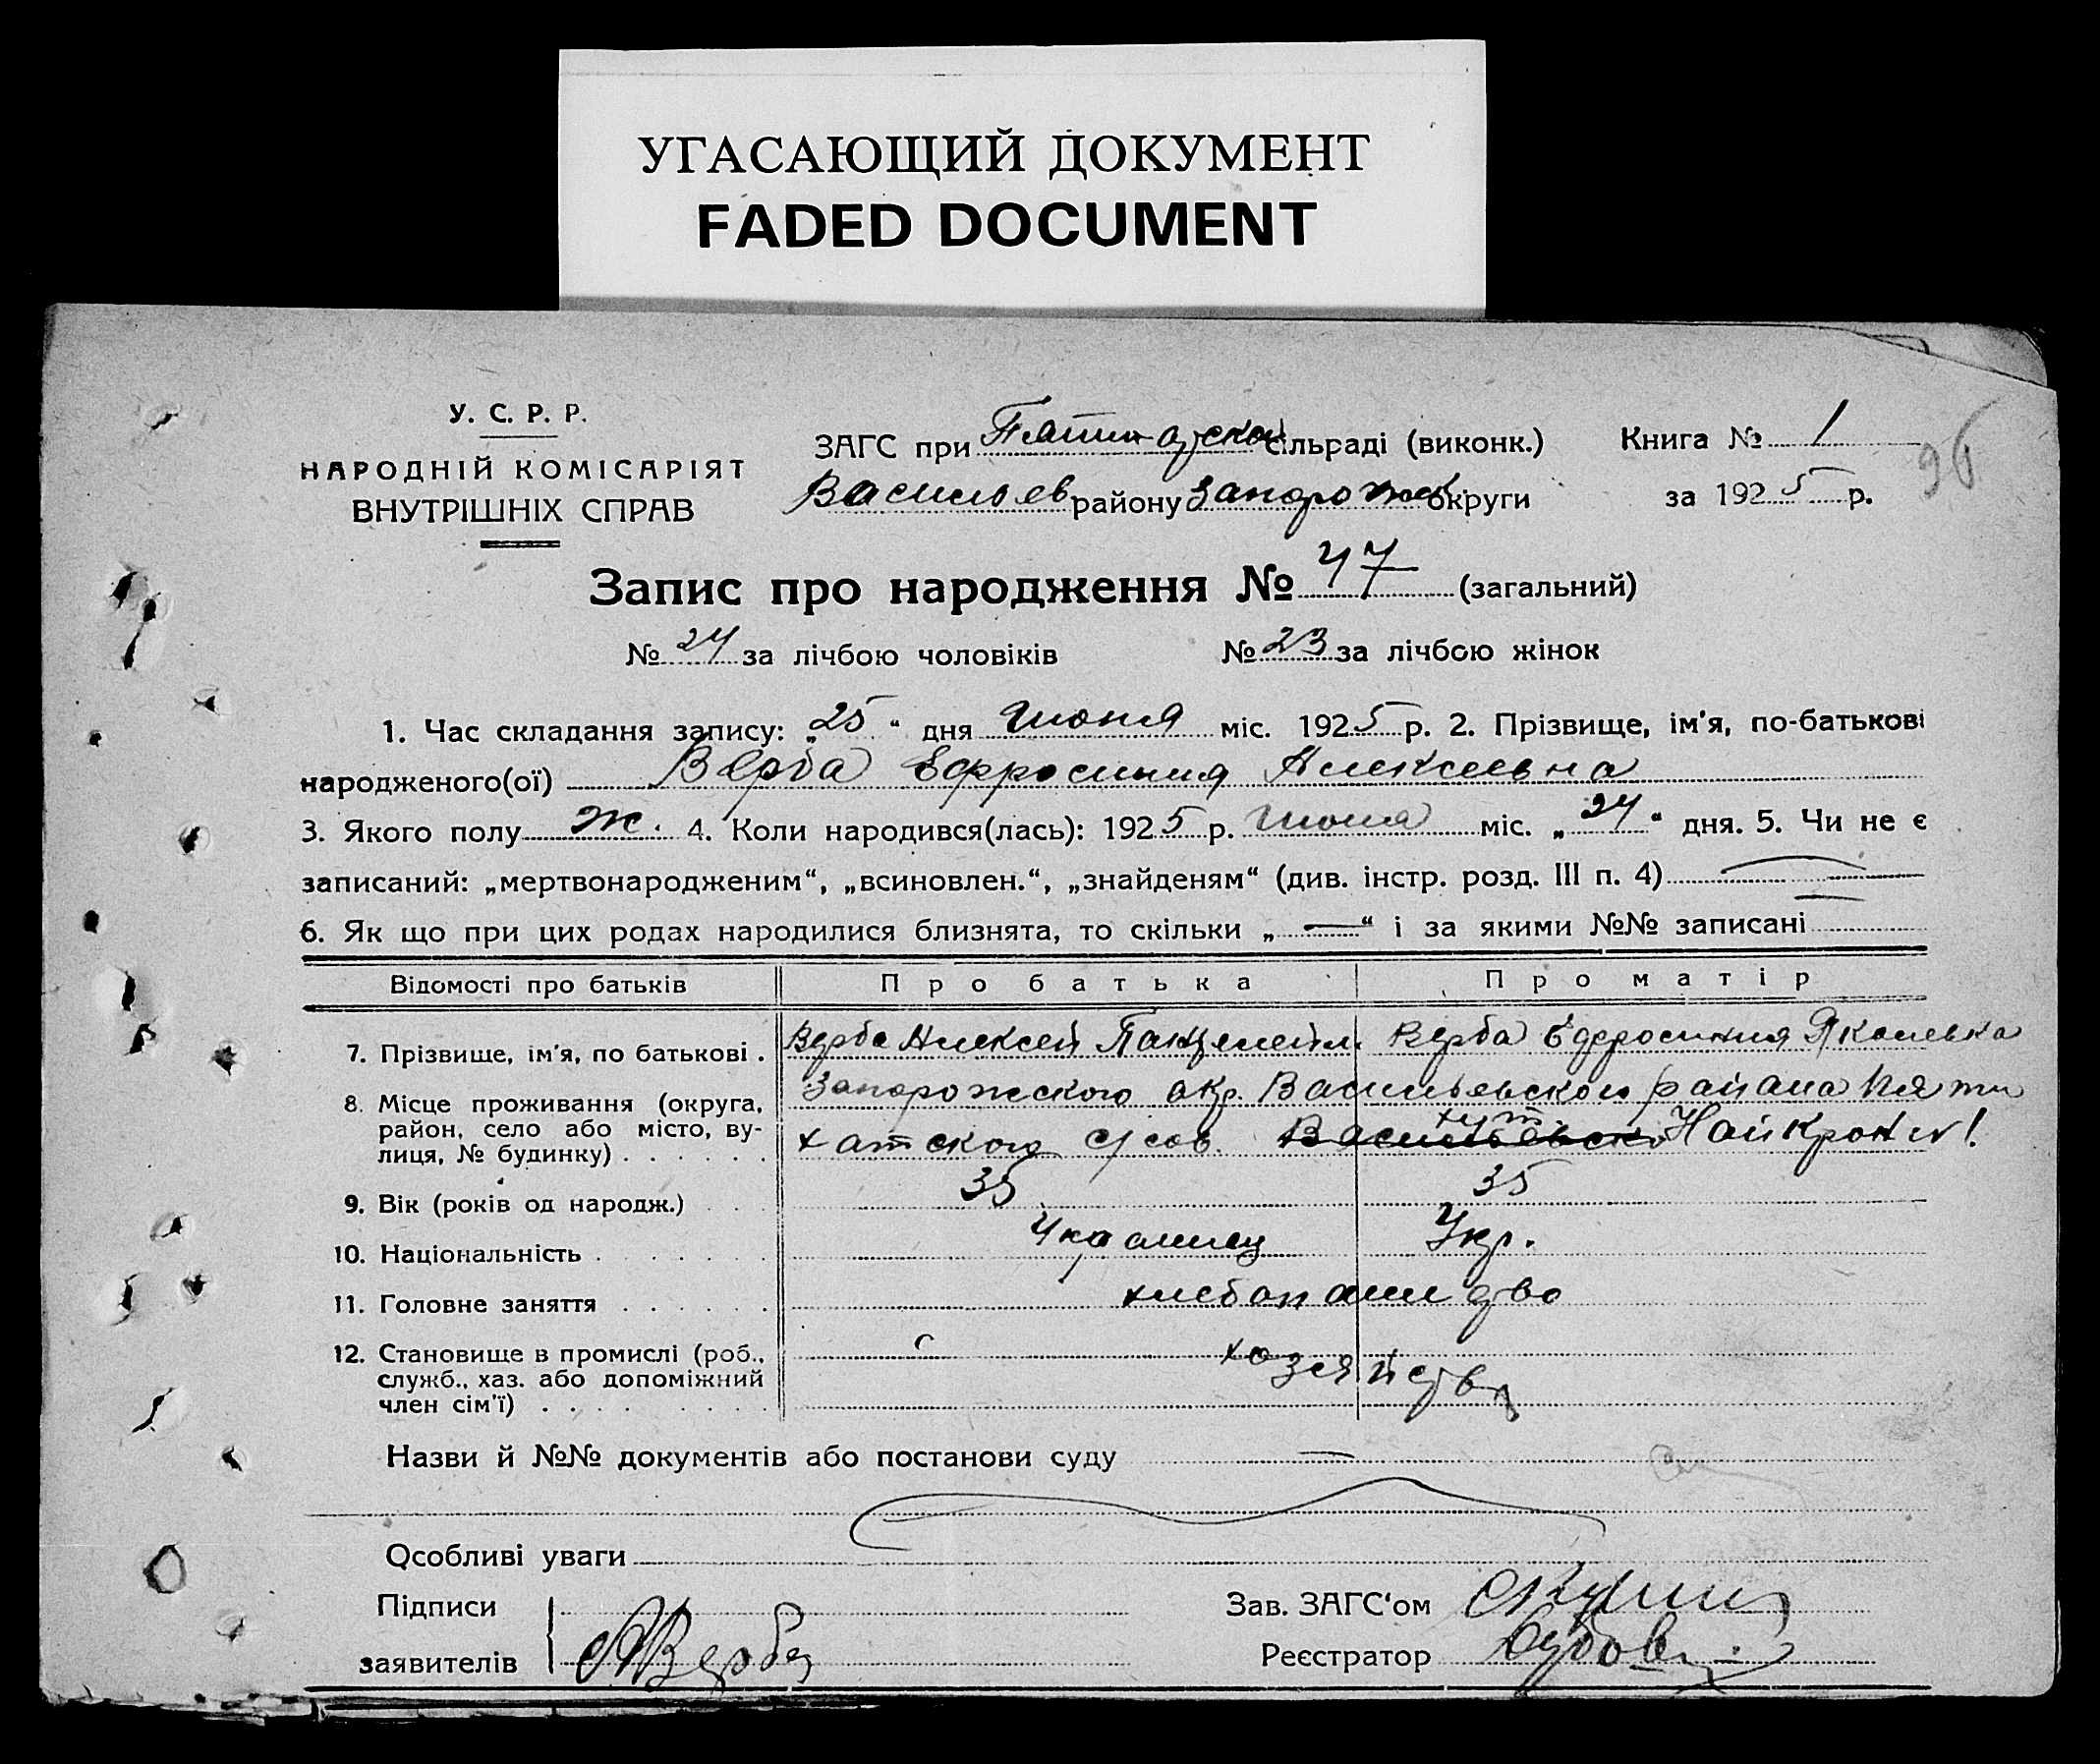 УГАСАЮЩИЙ ДОКУМЕНТ
FADED DOCUMENT
У. С. Р. Р.
НАРОДНІЙ КОМІСАРІЯТ
ВНУТРІШНІХ СПРАВ
ЗАГС при сільраді (виконк.)
Васильев району Запорожск округи
Книга № 1
за 1925 р.
96
Запис про народження № 47 (загальний)
№ 24 за лічбою чоловіків № 23 за лічбою жінок
1. Час складання запису: „25“ дня Июня міс. 1925 р. 2. Прізвище, ім'я, по-батькові
народженого(ої) Верба Ефросиния Алексеевна
3. Якого полу ж. 4. Коли народився(лась): 1925 р. Июня міс. „24“ дня. 5. Чи не є
записаний: „мертвонародженим“, „всиновлен.“, „знайденям“ (див. інстр. розд. III п. 4) —
6. Як що при цих родах народилися близнята, то скільки „—“ і за якими №№ записані
Відомості про батьків Про батька Про матір
7. Прізвище, ім'я, по батькові . Верба Алексей Верба Ефросиния Яковлевна
8. Місце проживання (округа, район, село або місто, вулиця, № будинку) . . . . . .
Запорожского окр. Васильевского района Пяти
хатского с/сов. хут Найкрон
9. Вік (років од народж.) . . . 35 35
10. Національність . . . . . . Украинец Укр.
11. Головне заняття . . . . . . хлебопашество
12. Становище в промислі (роб., служб., хаз. або допоміжний член сім'ї) . . . . . . . . .
хозяйство
Назви й №№ документів або постанови суду —
Особливі уваги
Підписи
заявителів АВерба
Зав. ЗАГС'ом
Реєстратор